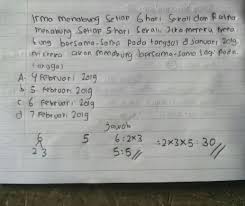 Irma menabung Setiap 6 hari Sekali dan Ratna
menabung Setiap 5 hari Sekali. Jika mereka mena
bung bersama-sama pada tanggal 8 Januari 2019,
mereka akan menabung bersama-sama lagi pada
tanggal
A. 4 Februari 2019
b. 5 Februari 2019
c. 6 Februari 2019
d. 7 Februari 2019
Jawab
6 5 6 = 2×3 = 2×3×5 = 30
2 3 5 = 5